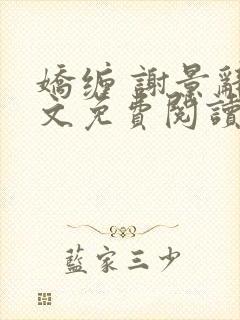 嬌缠 謝景辭
文免費閱讀
藍家三少